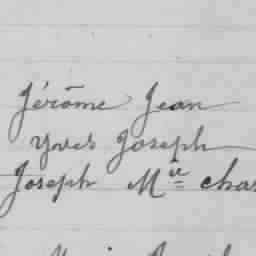 Jérôme Jean
Yves Joseph
Joseph Mie chas